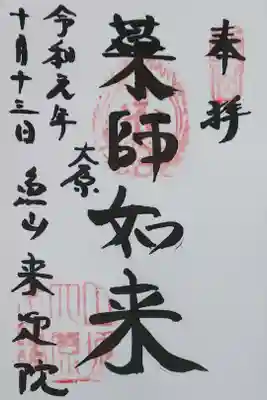 奉拝
薬師如来
大原
魚山 来迎院
令和元年
十月十三日